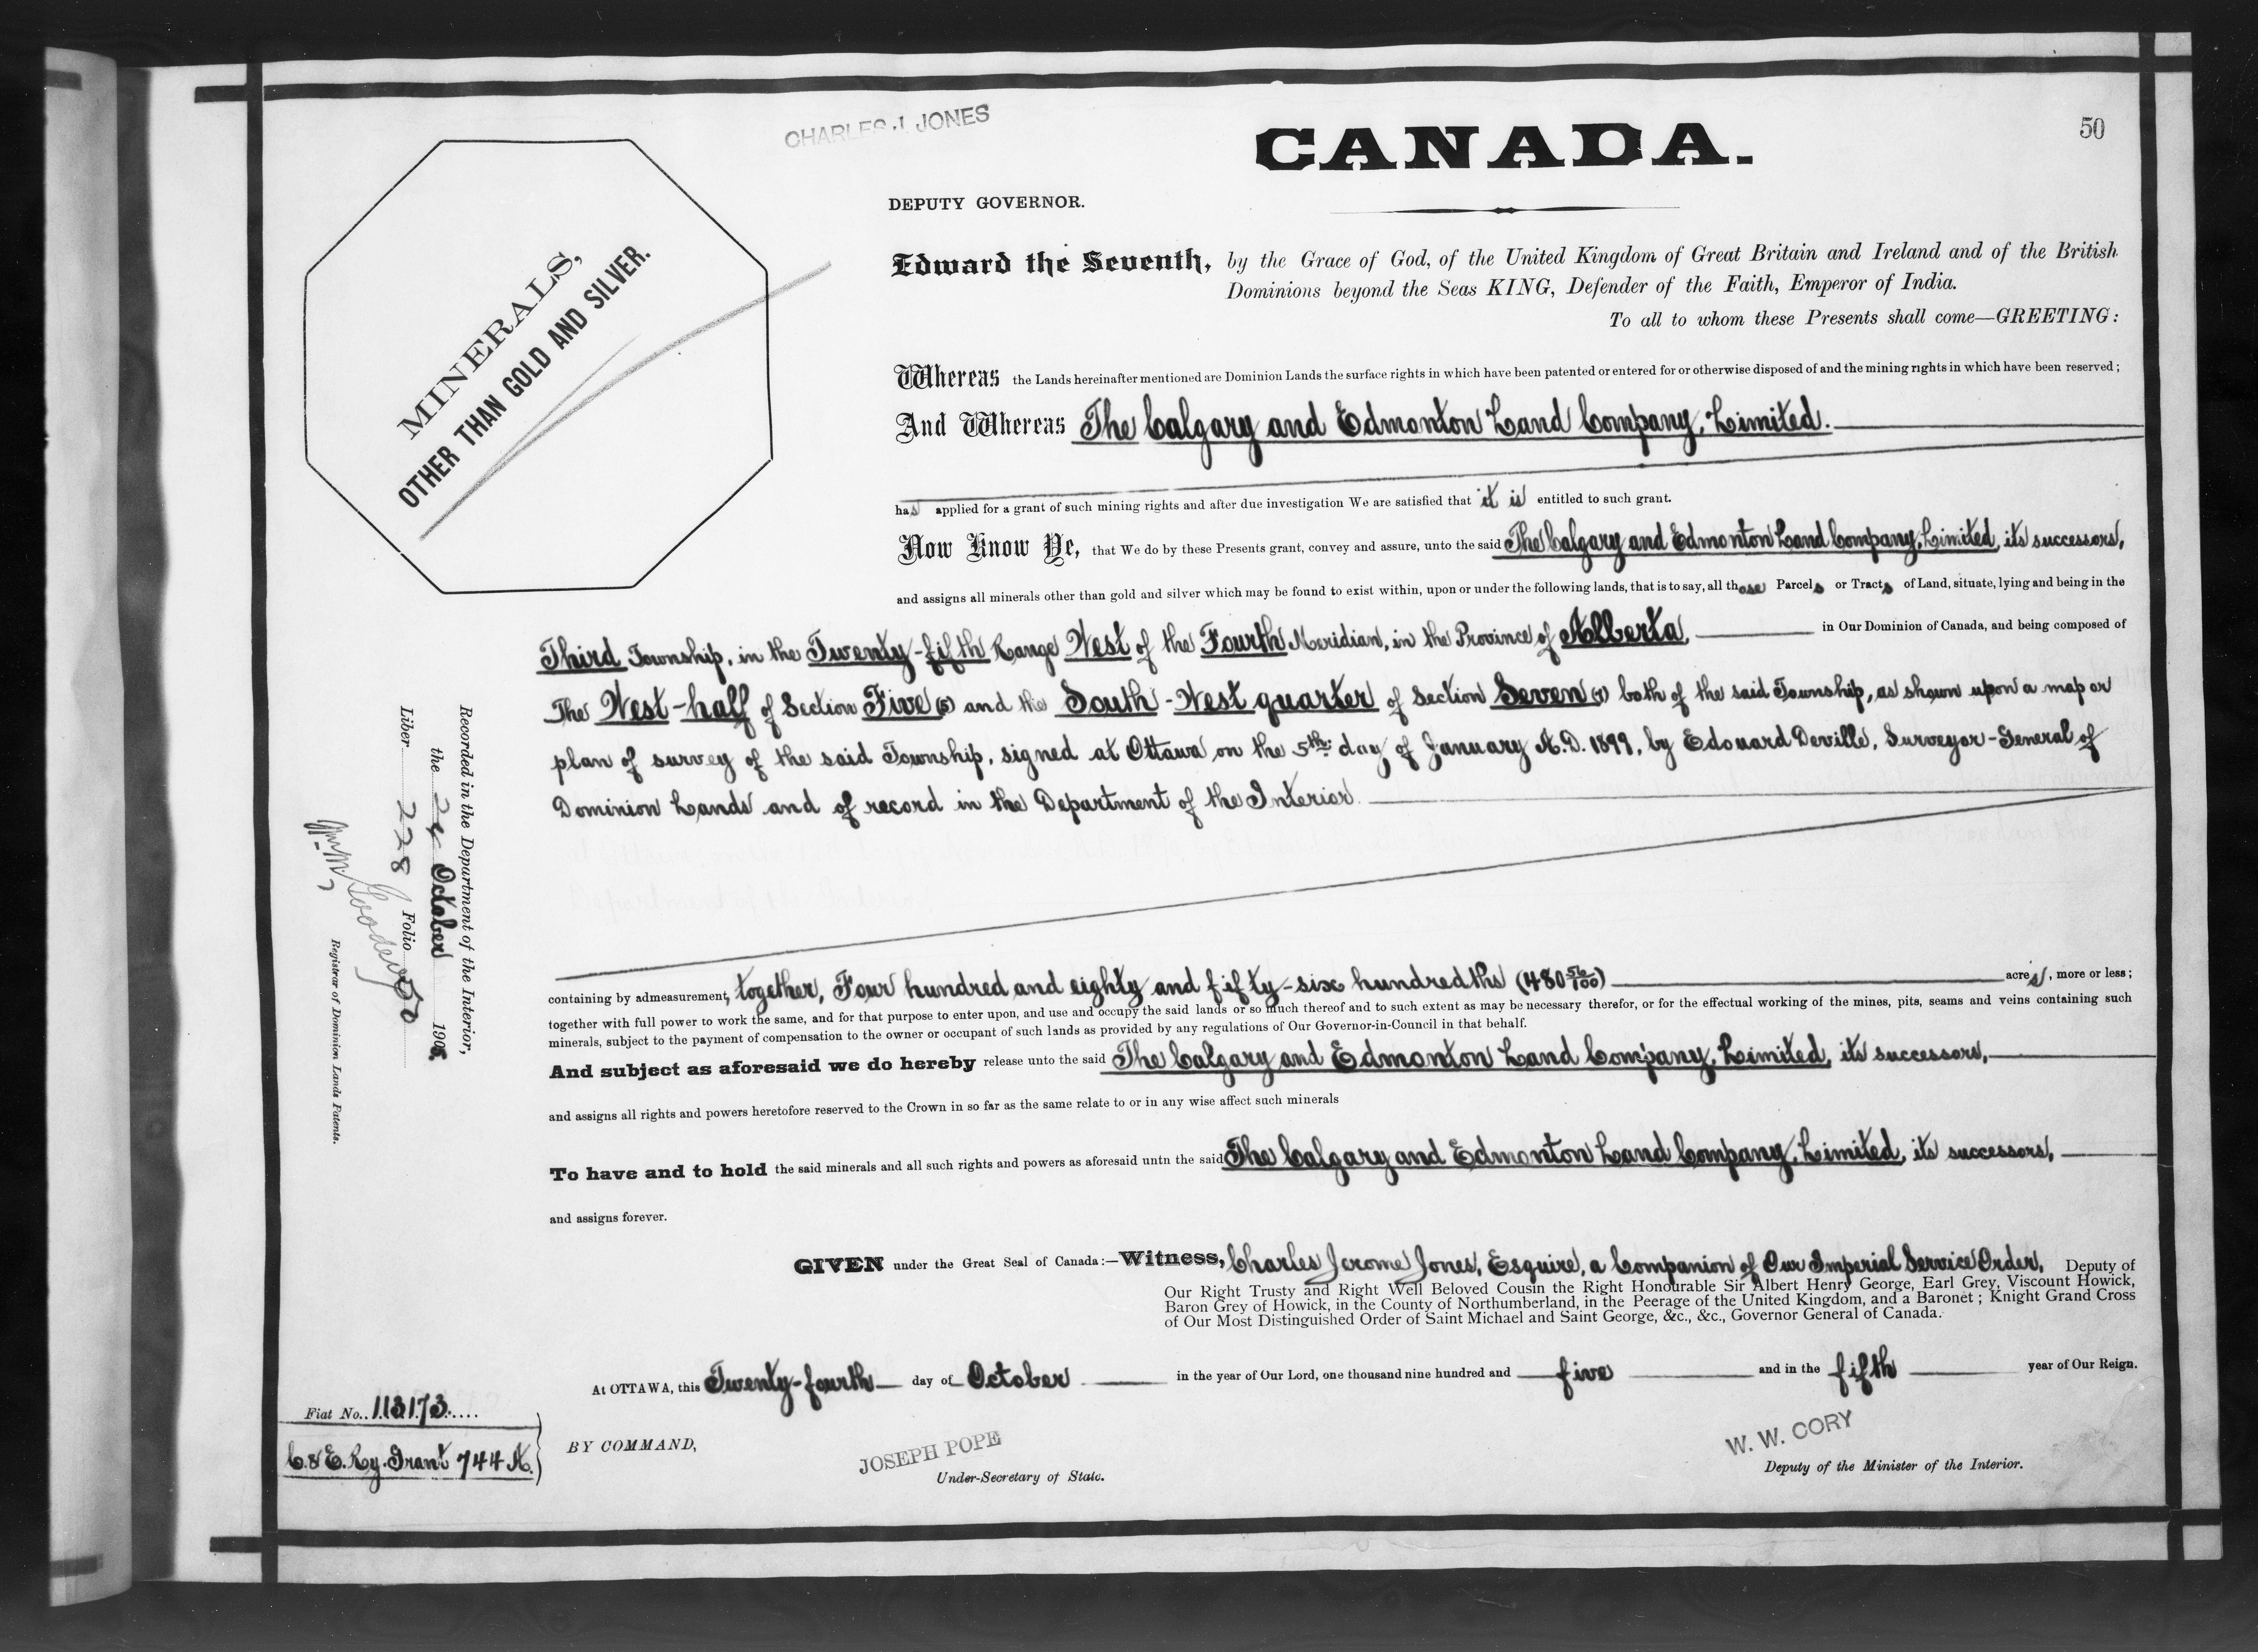 CHARLES J. JONES
CANADA.
50
DEPUTY GOVERNOR.
MINERALS,
OTHER THAN GOLD AND SILVER.
Edward the Seventh, by the Grace of God, of the United Kingdom of Great Britain and Ireland and of the British
Dominions beyond the Seas KING, Defender of the Faith, Emperor of India.
To all to whom these Presents shall come—GREETING:
Whereas the Lands hereinafter mentioned are Dominion Lands the surface rights in which have been patented or entered for or otherwise disposed of and the mining rights in which have been reserved;
And Whereas The Calgary and Edmonton Land Company, Limited.
has applied for a grant of such mining rights and after due investigation We are satisfied that it is entitled to such grant.
Now Know Ye, that We do by these Presents grant, convey and assure, unto the said The Calgary and Edmonton Land Company, Limited, its successors,
and assigns all minerals other than gold and silver which may be found to exist within, upon or under the following lands, that is to say, all those Parcels or Tracts of Land, situate, lying and being in the
Third Township, in the Twenty-fifth Range West of the Fourth Meridian, in the Province of Alberta, in Our Dominion of Canada, and being composed of
The West-half of Section Five (5) and the South-West quarter of Section Seven (7) both of the said Township, as shown upon a map or
plan of survey of the said Township, signed at Ottawa on the 5th day of January A.D. 1899, by Edouard Deville, Surveyor-General of
Dominion Lands and of record in the Department of the Interior.
containing by admeasurement, together, Four hundred and eighty and fifty-six hundredths (480 56/100) acres, more or less;
together with full power to work the same, and for that purpose to enter upon, and use and occupy the said lands or so much thereof and to such extent as may be necessary therefor, or for the effectual working of the mines, pits, seams and veins containing such
minerals, subject to the payment of compensation to the owner or occupant of such lands as provided by any regulations of Our Governor-in-Council in that behalf.
And subject as aforesaid we do hereby release unto the said The Calgary and Edmonton Land Company, Limited, its successors,
and assigns all rights and powers heretofore reserved to the Crown in so far as the same relate to or in any wise affect such minerals
To have and to hold the said minerals and all such rights and powers as aforesaid untn the said The Calgary and Edmonton Land Company, Limited, its successors,
and assigns forever.
GIVEN under the Great Seal of Canada:—Witness, Charles Jerome Jones, Esquire, a Companion of Our Imperial Service Order, Deputy of
Our Right Trusty and Right Well Beloved Cousin the Right Honourable Sir Albert Henry George, Earl Grey, Viscount Howick,
Baron Grey of Howick, in the County of Northumberland, in the Peerage of the United Kingdom, and a Baronet; Knight Grand Cross
of Our Most Distinguished Order of Saint Michael and Saint George, &c., &c., Governor General of Canada.
At OTTAWA, this Twenty-fourth day of October in the year of Our Lord, one thousand nine hundred and five and in the fifth year of Our Reign.
BY COMMAND,
JOSEPH POPE
Under-Secretary of State.
W. W. CORY
Deputy of the Minister of the Interior.
Fiat No. 113173
C. & E. Ry. Grant 744 A.
Recorded in the Department of the Interior,
the 24 October 1905
Liber 228 Folio 50
Registrar of Dominion Lands Patents.